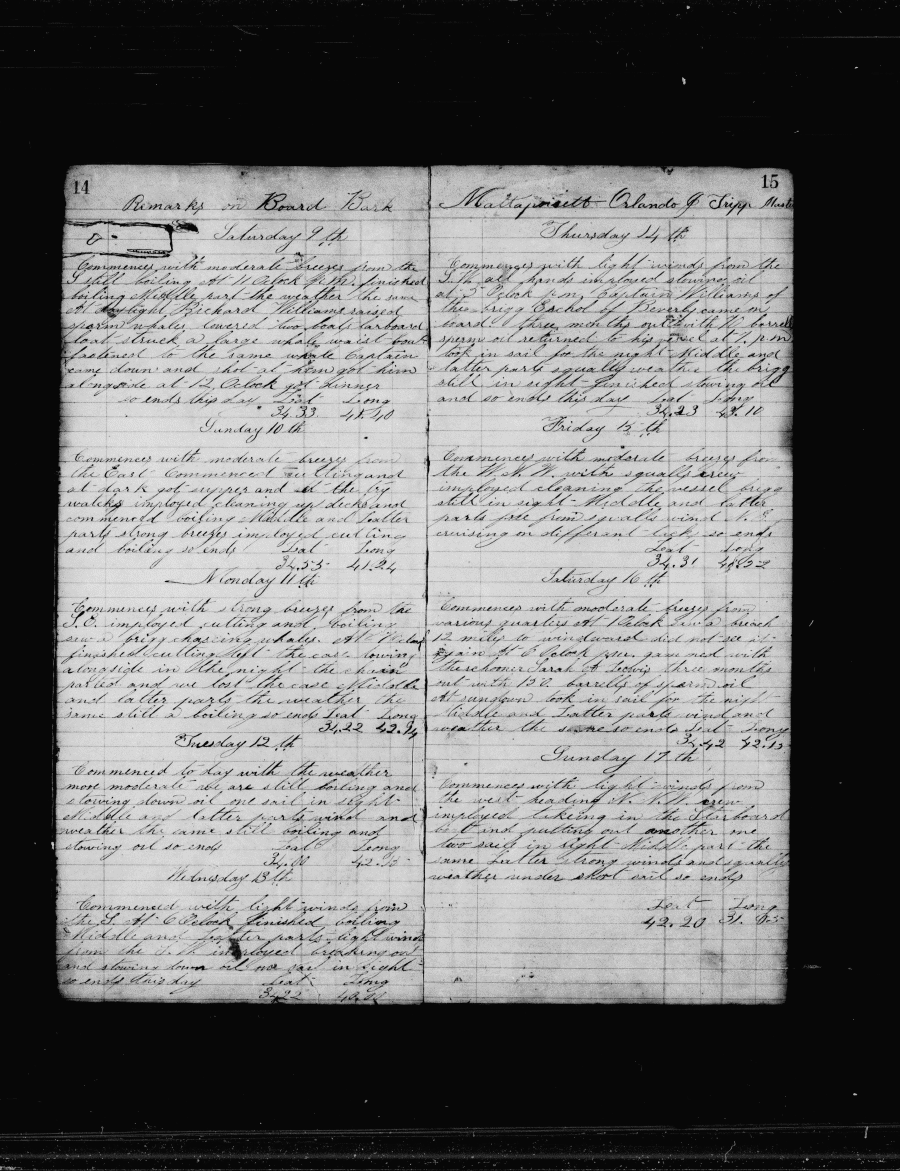 14
Remarks on Board Bark
Saturday 9th
Commences with moderate breezes from the
S still boiling At 11 Oclock P.M. finished
boiling Middle part the weather the same
At daylight Richard Williams raised
sperm whales lowered two boats larboard
boat struck a large whale waist boat
fastened to the same whale Captain
came down and shot at him got him
alongside at 12 Oclock got dinner
so ends this day Lat Long
34.33 41.40
Sunday 10th
Commences with moderate breezes from
the East Commenced cutting and
at dark got supper and set the try
watches imployed cleaning up decks and
commenced boiling Middle and Latter
parts strong breezes imployed cutting
and boiling so ends Lat Long
34.55 41.24
Monday 11th
Commences with strong breezes from the
S.E. imployed cutting and boiling
saw a brigg chaseing whales. At
finished cutting left the case towing
alongside in the night the chain
parted and we lost the case Middle
and latter parts the weather the
same still a boiling so ends Lat Long
34.22 42.14
Tuesday 12th
Commenced to day with the weather
more moderate we are still boiling and
stowing down oil one sail in sight
Middle and latter parts wind and
weather the same still boiling and
stowing oil so ends Lat Long
34.00 42.
Wednesday 13th
Commenced with light winds from
the S. At 6 Oclock finished boiling
Middle and latter parts light winds
from the imployed breaking out
and stowing down oil no sail in sight
so ends this day Lat Long
34.22
15
Mattapoisett Orlando J Tripp Master
Thursday 14th
Commences with light winds from the
S.W. all hands imployed stowing oil
at 3 Oclock p.m. Captain Williams of
the brigg Eschol of Beverly came on
board three months out with barrells
sperm oil returned to his vessel at 7. p.m
took in sail for the night Middle and
latter parts squally weather the brigg
still in sight finished stowing oil
and so ends this day Lat Long
34.23 43.10
Friday 15th
Commences with moderate breezes from
the W.N.W. with squalls crew
imployed cleaning the vessel brigg
still in sight Middle and latter
parts free from squalls wind N.
cruising on differant tacks so ends
Lat Long
34.31
Saturday 16th
Commences with mooderate breezes from
various quarters At 1 Oclock saw a breach
12 miles to windward did not see it
again At 6 Oclock p.m. gammed with
the schooner Sarah Lewis three months
out with 130 barrells of sperm oil
At sundown took in sail for the night
Middle and Latter parts wind and
weather the same so ends Lat Long
34.42 42.12
Sunday 17th
Commences with light winds from
the west heading N.N.W. crew
imployed takeing in the Starboard
boat and putting out another one
two sails in sight Middle part the
same Latter strong winds and squally
weather under short sail so ends
Lat Long
42.20 31.